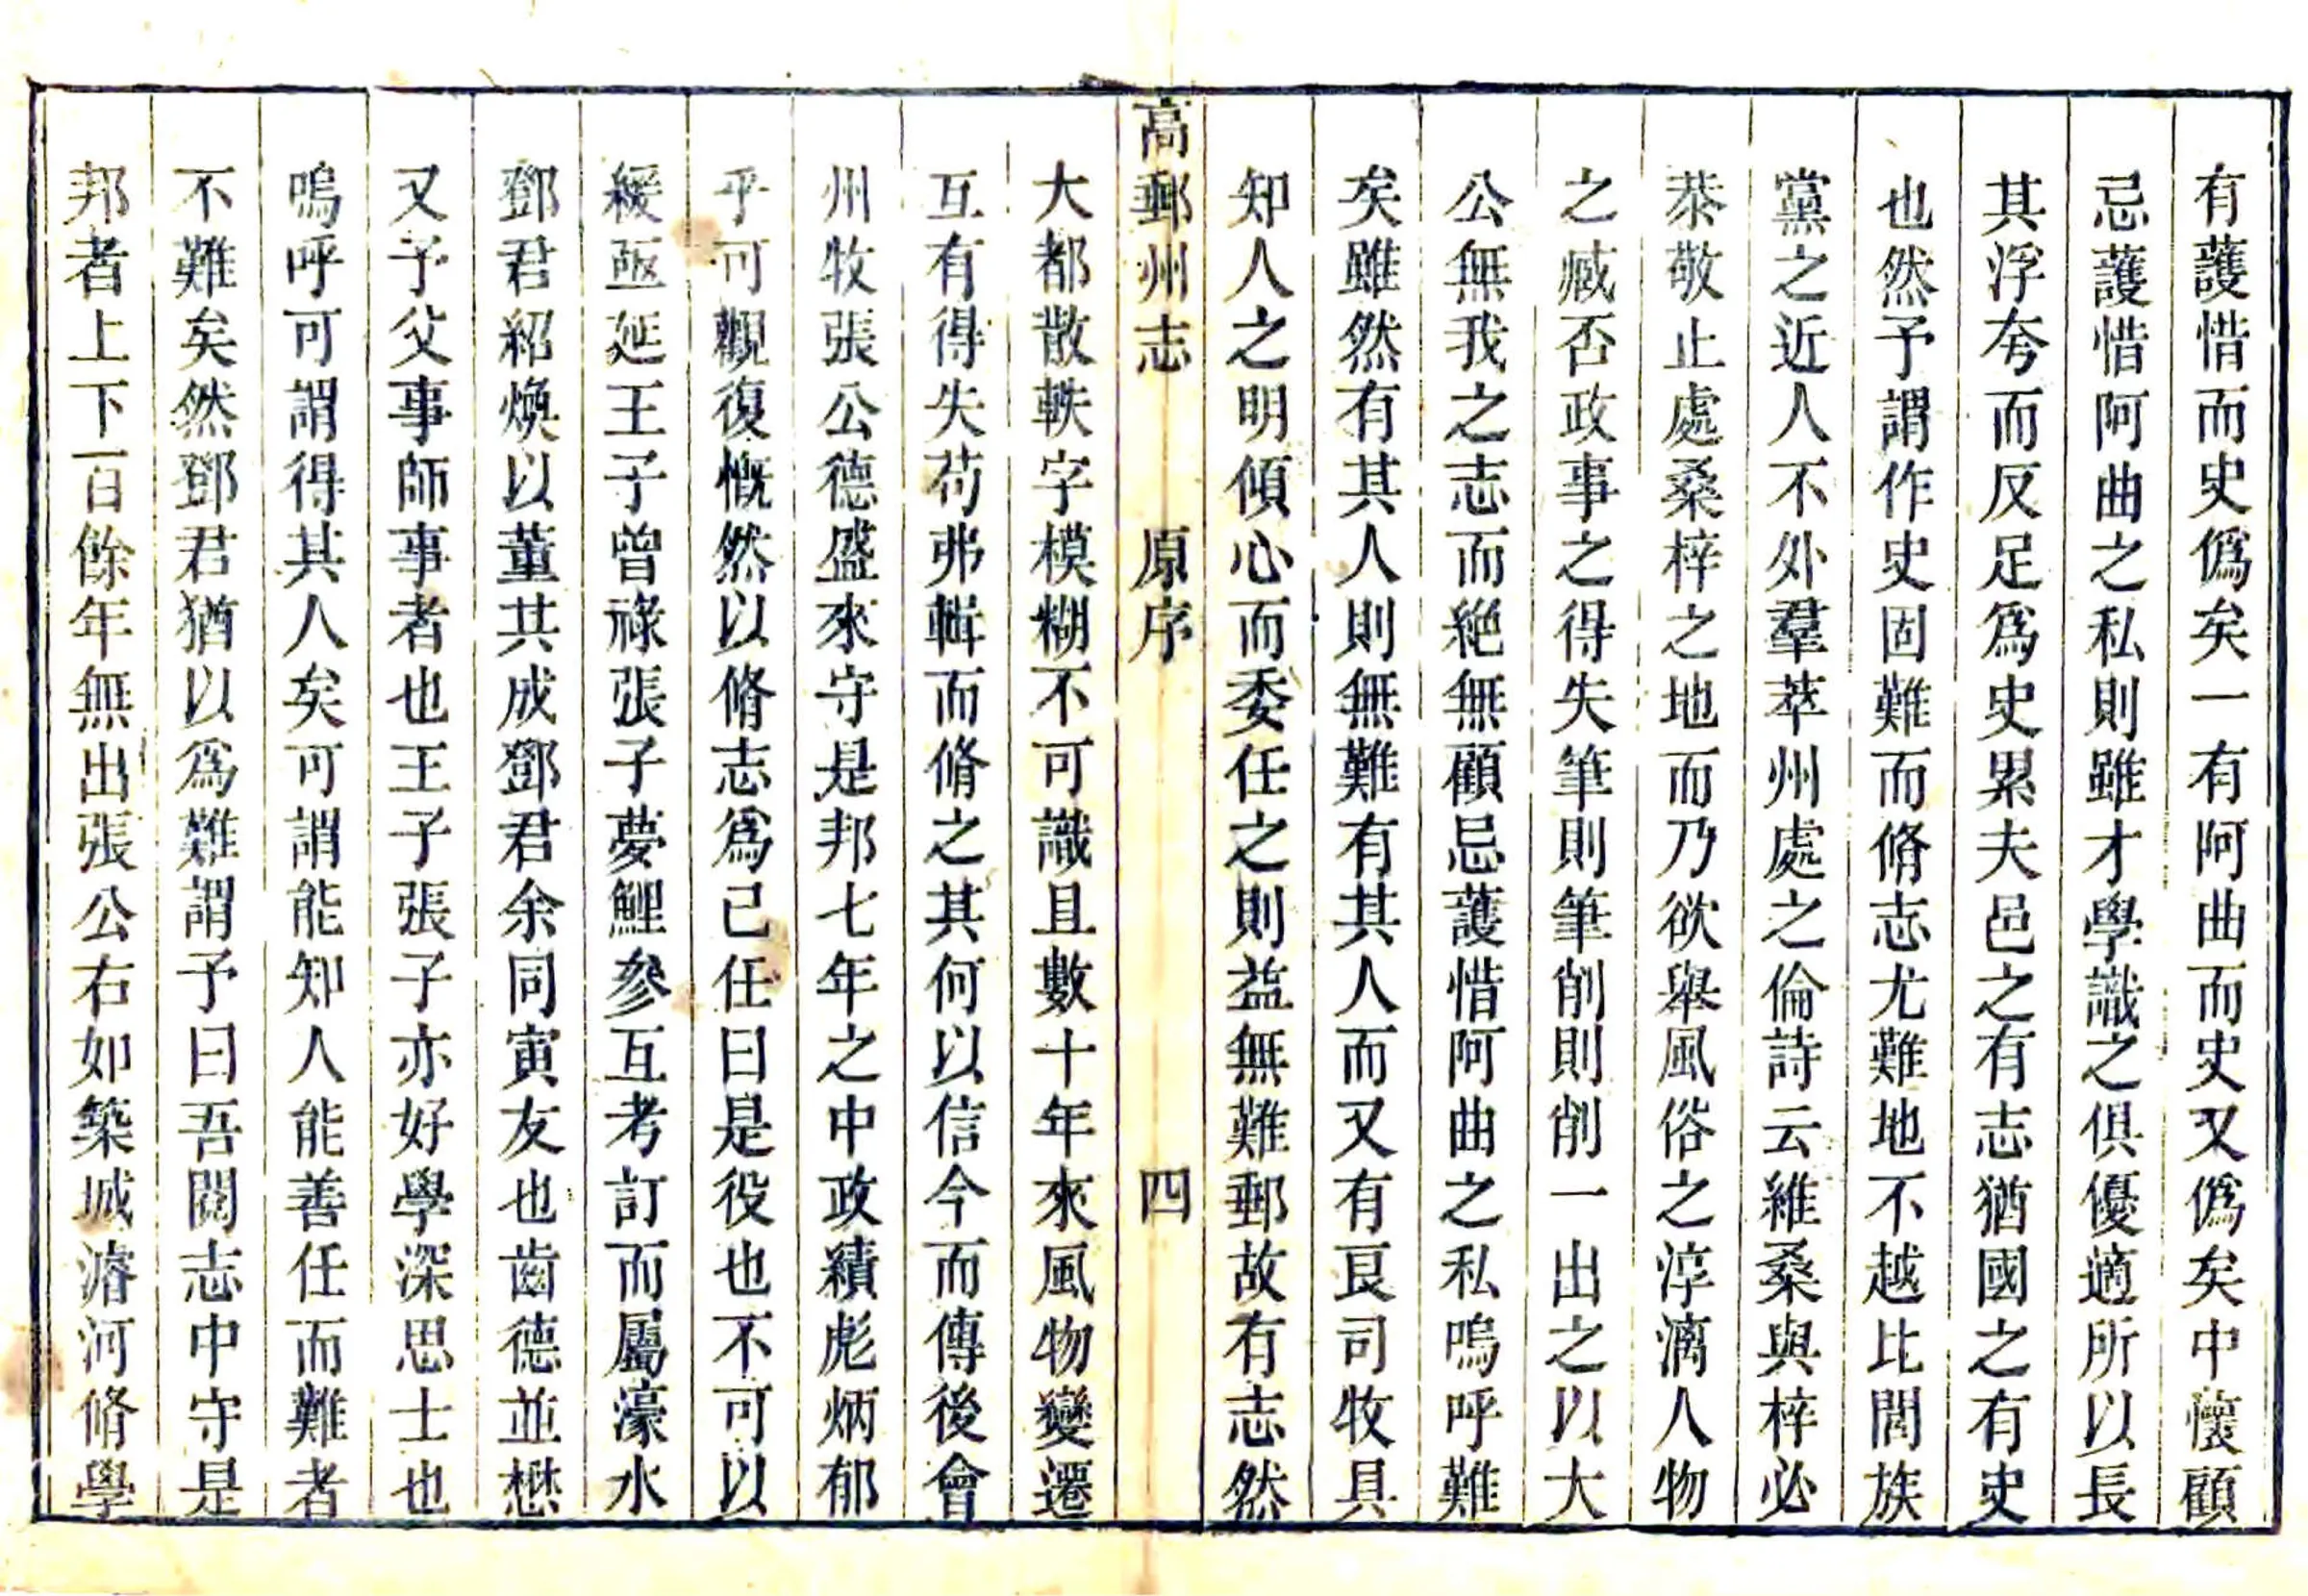 有護惜而史僞矣一有阿曲而史又僞矣中懷顧
忌護惜阿曲之私則雖才學識之俱優適所以長
其浮夸而反足爲史累夫邑之有志猶國之有史
也然予謂作史固難而脩志尤難地不越比閭族
黨之近人不外羣萃州處之倫詩云維桑與梓必
恭敬止處桑梓之地而乃欲舉風俗之淳漓人物
之臧否政事之得失筆則筆削則削一出之以大
公無我之志而絕無顧忌護惜阿曲之私嗚呼難
矣雖然有其人則無難有其人而又有良司牧具
知人之明傾心而委任之則益無難郵故有志然
高郵州志 原序 四
大都散軼字模糊不可識且數十年來風物變遷
互有得失苟弗輯而脩之其何以信今而傳後會
州牧張公德盛來守是邦七年之中政績彪炳郁
乎可觀復慨然以脩志爲己任曰是役也不可以
緩亟延王子曾祿張子夢鯉參互考訂而屬濠水
鄧君紹煥以董其成鄧君余同寅友也齒德並懋
又予父事師事者也王子張子亦好學深思士也
嗚呼可謂得其人矣可謂能知人能善任而難者
不難矣然鄧君猶以爲難謂予曰吾閱志中守是
邦者上下一百餘年無出張公右如築城濬河脩學